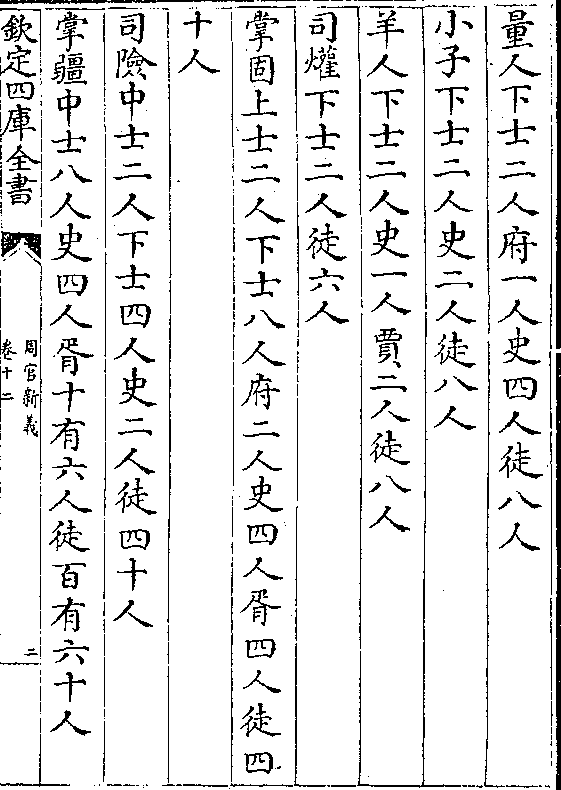 量人下士二人府一人史四人徒八人
小子下士二人史二人徒八人
羊人下士二人史一人賈二人徒八人
司爟下士二人徒六人
掌固上士二人下士八人府二人史四人胥四人徒四
十人
司險中士二人下士四人史二人徒四十人
掌疆中士八人史四人胥十有六人徒百有六十人
欽定四庫全書
周官新義
卷十二
二